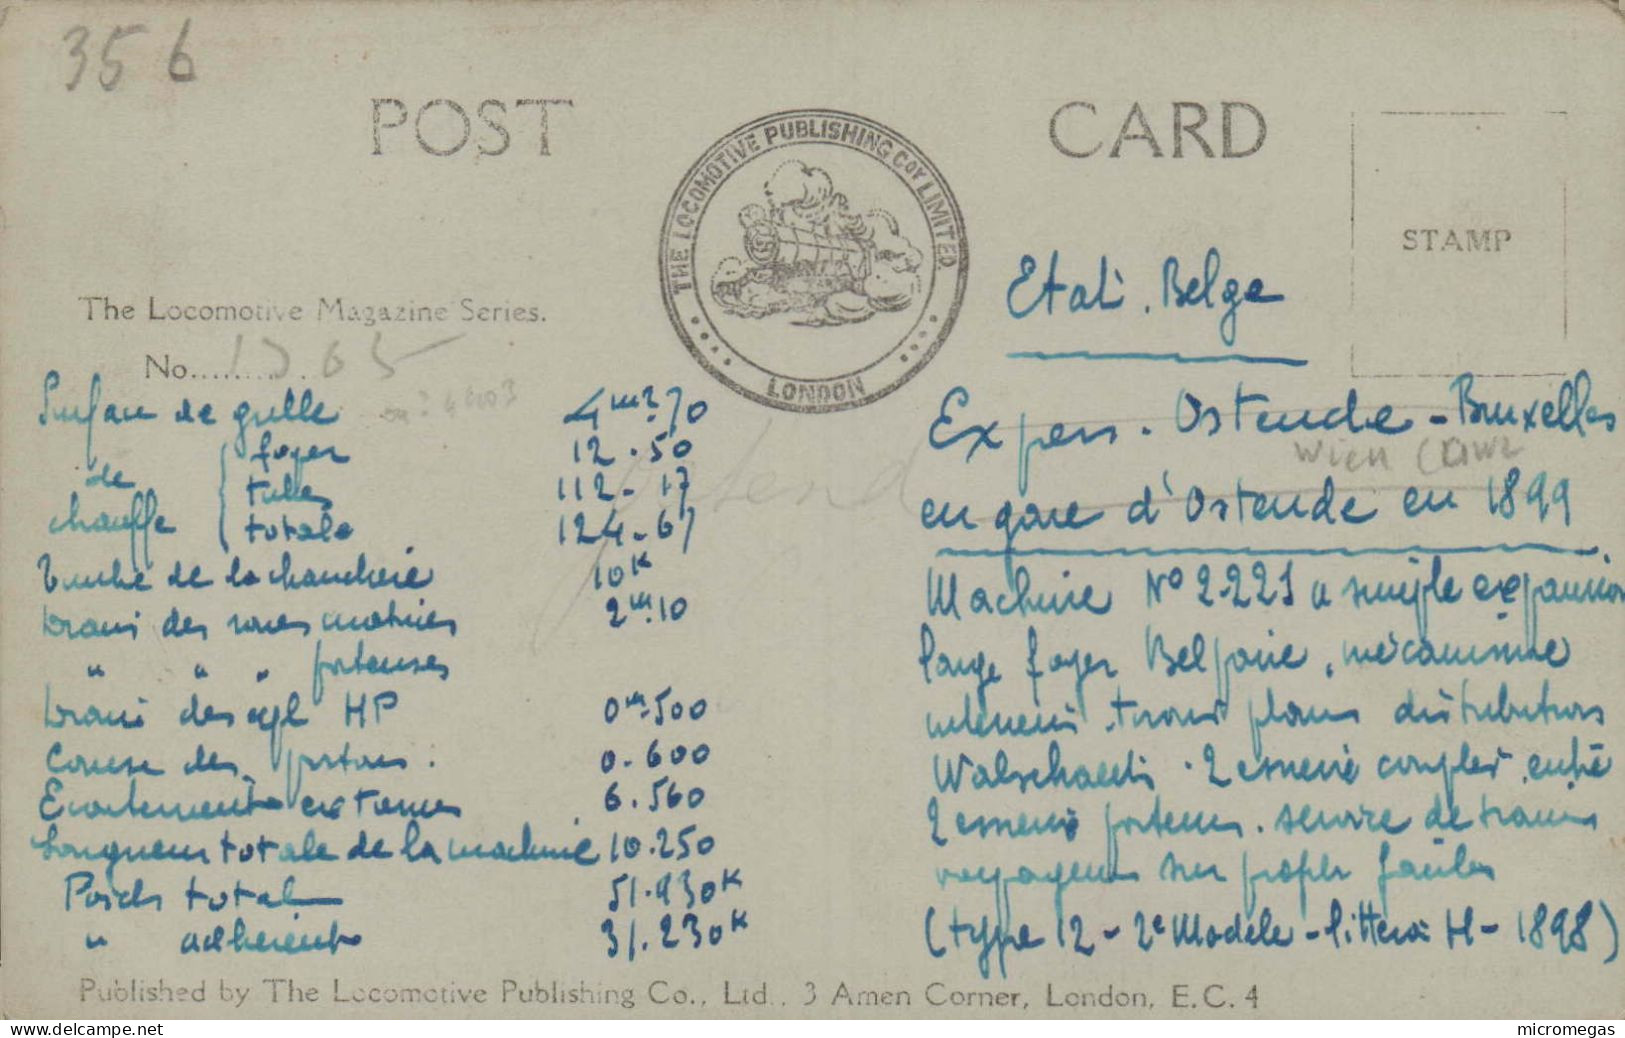 356
POST CARD
THE LOCOMOTIVE PUBLISHING COY LIMITED.
LONDON
STAMP
The Locomotive Magazine Series.
No..........
Surface de grille 4m².70
de chauffe { foyer 12.50
tubes 112.17
totale 124.67
Timbre de la chaudière 10K
Diam des roues motrices 2m.10
" " " porteuses
Diam des cyl HP 0m.500
Course des pistons. 0.600
Ecartement extreme 6.560
Longueur totale de la machine 10.250
Poids total 51.930K
" adherent 31.230K
Etat. Belge
Express. Ostende-Bruxelles
Wien
en gare d'Ostende en 1899
Machine No 2.221 a simple expansion
large foyer Belpaire, mécanisme
interieur. tiroirs plans distribution
Walschaerts. 2 essieux couplés entre
2 essieux porteurs. service de trains
voyageurs sur profils faciles
(type 12 - 2e Modèle - littera H - 1898)
Ostend
Published by The Locomotive Publishing Co., Ltd., 3 Amen Corner, London, E.C. 4
delcampe.net
micromegas